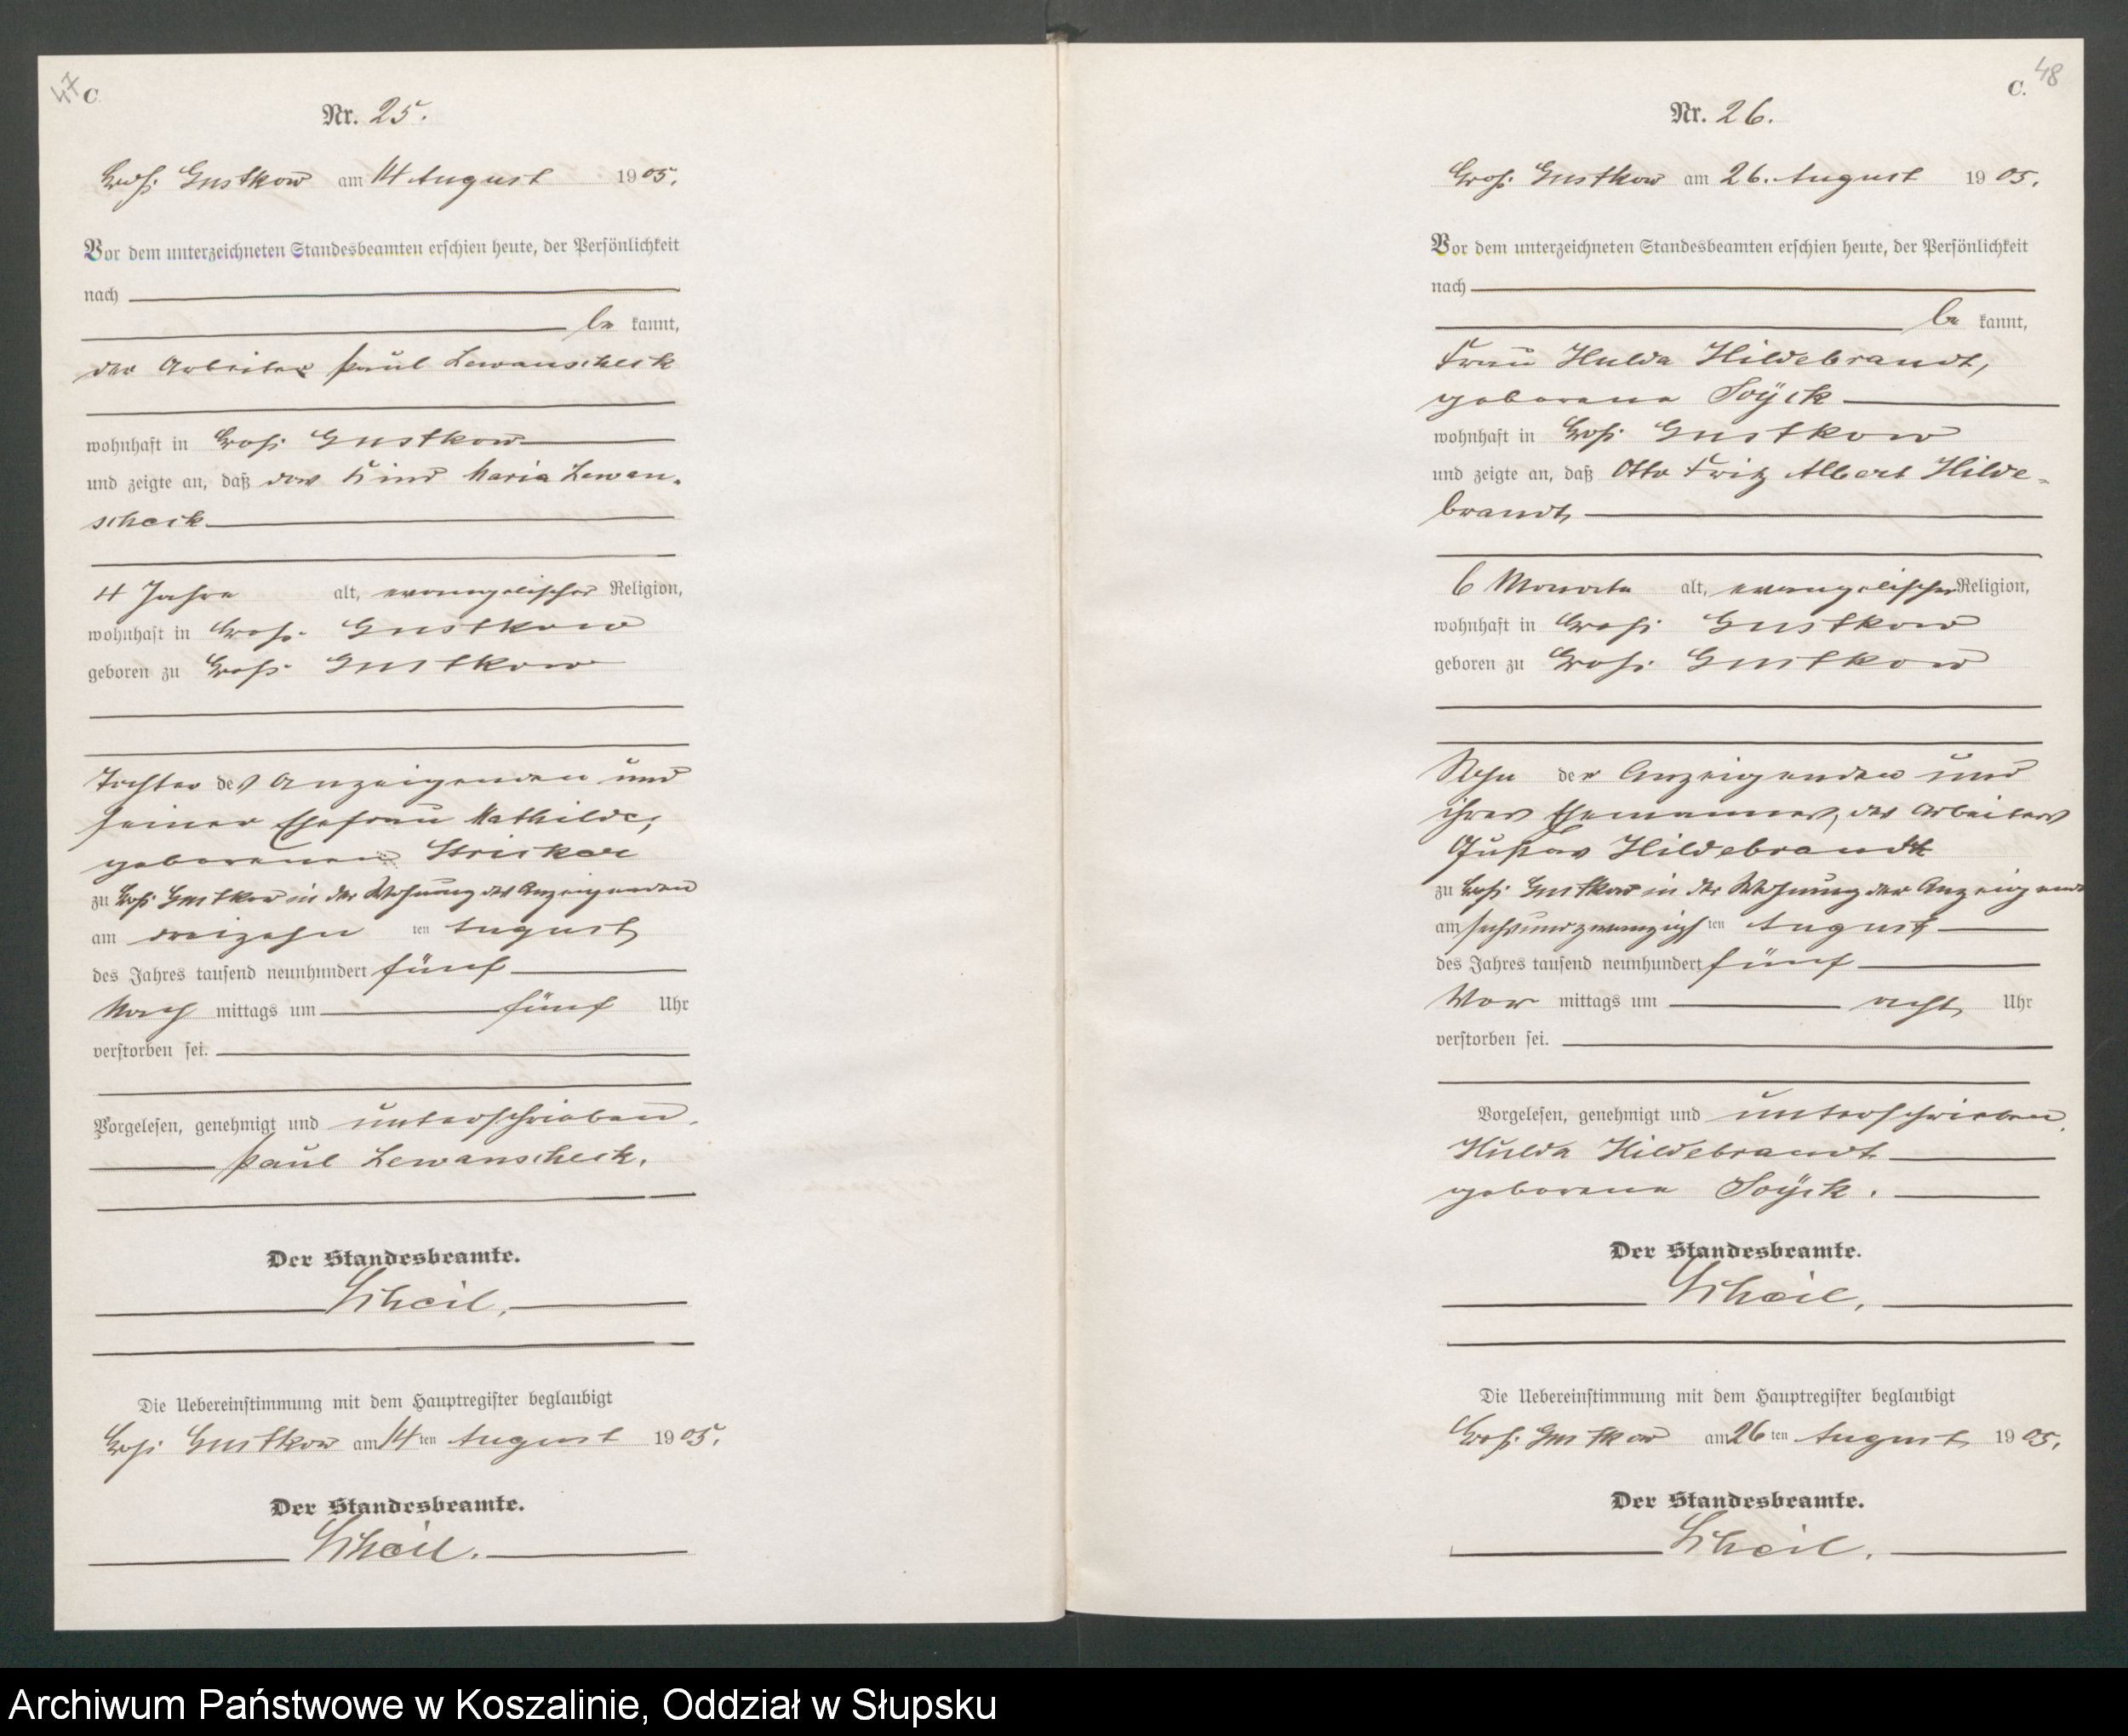 47
C.
Nr. 25.
Groß Gustkow am 14 August 1905.
Vor dem unterzeichneten Standesbeamten erschien heute, der Persönlichkeit
nach
be kannt,
der Arbeiter Paul Lewanscheck
wohnhaft in Groß Gustkow
und zeigte an, daß das Kind Maria Lewan-
scheck
4 Jahre alt, evangelischer Religion,
wohnhaft in Groß Gustkow
geboren zu Groß Gustkow
Tochter des Anzeigenden und
seiner Ehefrau Mathilde,
geborenen
zu Groß Gustkow in der Wohnung des Anzeigenden
am dreizehn ten August
des Jahres tausend neunhundert fünf
Nach mittags um fünf Uhr
verstorben sei.
Vorgelesen, genehmigt und unterschrieben.
Paul Lewanscheck.
Der Standesbeamte.
Scheil.
Die Uebereinstimmung mit dem Hauptregister beglaubigt
Groß Gustkow am 14 ten August 1905.
Der Standesbeamte.
Scheil.
48
C.
Nr. 26.
Groß Gustkow am 26. August 1905.
Vor dem unterzeichneten Standesbeamten erschien heute, der Persönlichkeit
nach
be kannt,
Frau Hulda Hildebrandt,
geborene Soÿck
wohnhaft in Groß Gustkow
und zeigte an, daß Otto Fritz Albert Hilde-
brandt
6 Monate alt, evangelischer Religion,
wohnhaft in Groß Gustkow
geboren zu Groß Gustkow
Sohn der Anzeigenden und
ihres Ehemannes, des Arbeiters
Gustav Hildebrandt
zu Groß Gustkow in der Wohnung der Anzeigende
am sechsundzwanzigs ten August
des Jahres tausend neunhundert fünf
Vor mittags um acht Uhr
verstorben sei.
Vorgelesen, genehmigt und unterschrieben.
Hulda Hildebrandt
geborene Soÿck.
Der Standesbeamte.
Scheil.
Die Uebereinstimmung mit dem Hauptregister beglaubigt
Groß Gustkow am 26 ten August 1905.
Der Standesbeamte.
Scheil.
Archiwum Państwowe w Koszalinie, Oddział w Słupsku